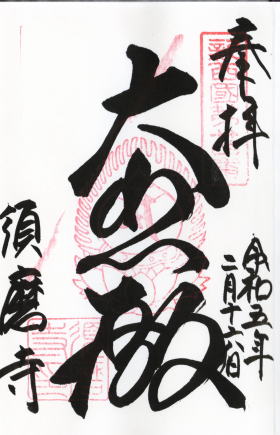 奉拝
令和五年
二月十六日
大悲殿
須磨寺